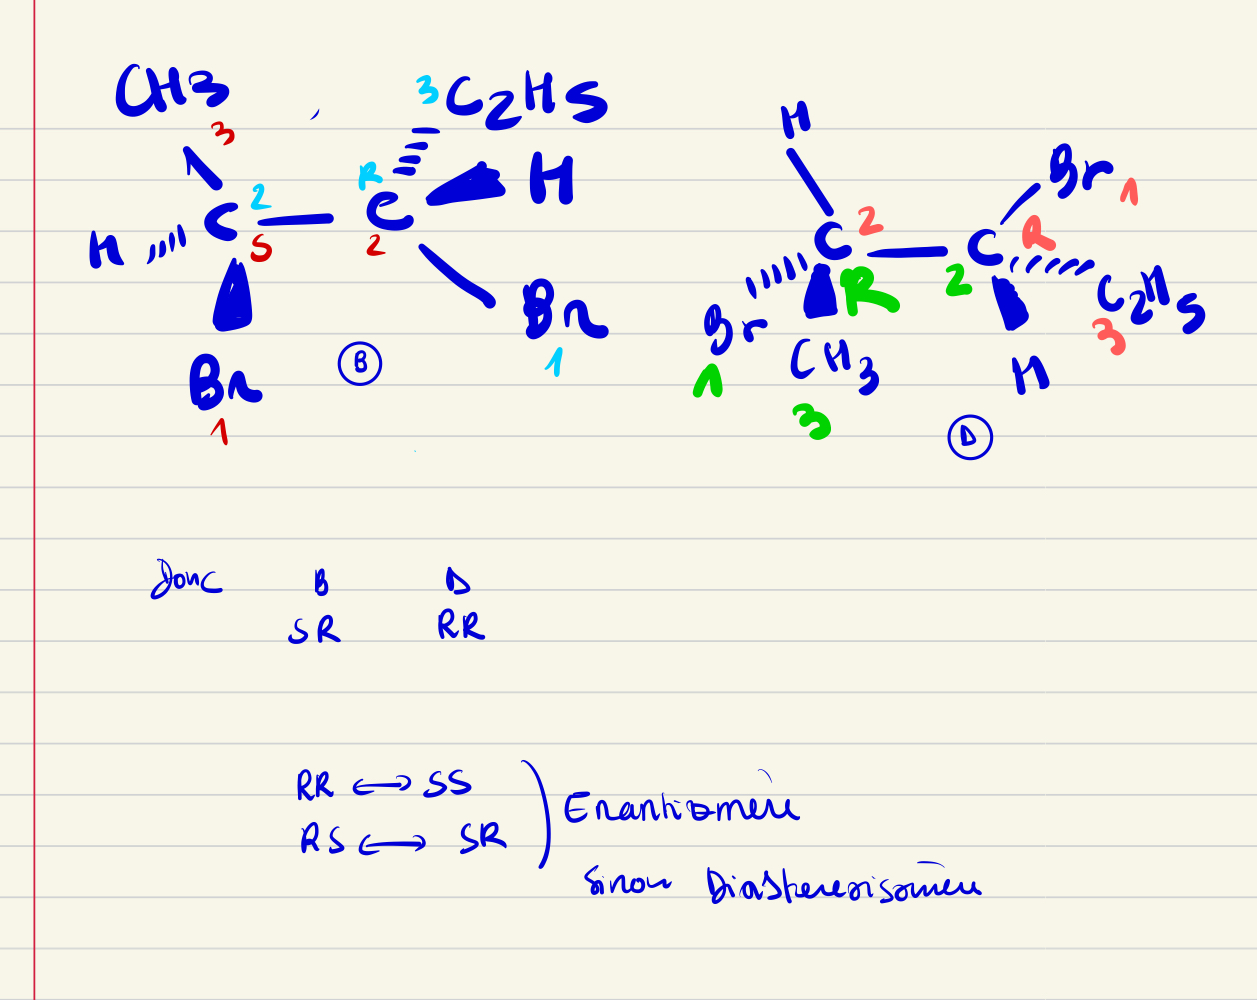 CH3 3 C2H5 H
3 R H Br 1
H C 2 S C 2 C 2 R C R 2
Br 1 Br 1 Br 1 CH3 3 C2H5 3 H
B D
Donc B D
SR RR
RR ↔ SS
RS ↔ SR
Enantiomère
Sinon Diastereoisomère